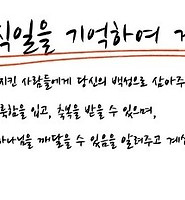 식일을 기억하여 거
지킨 사람들에게 당신의 백성으로 삼아주
룩함을 입고, 축복을 받을 수 있으며,
하나님을 깨달을 수 있음을 알려주고 계십